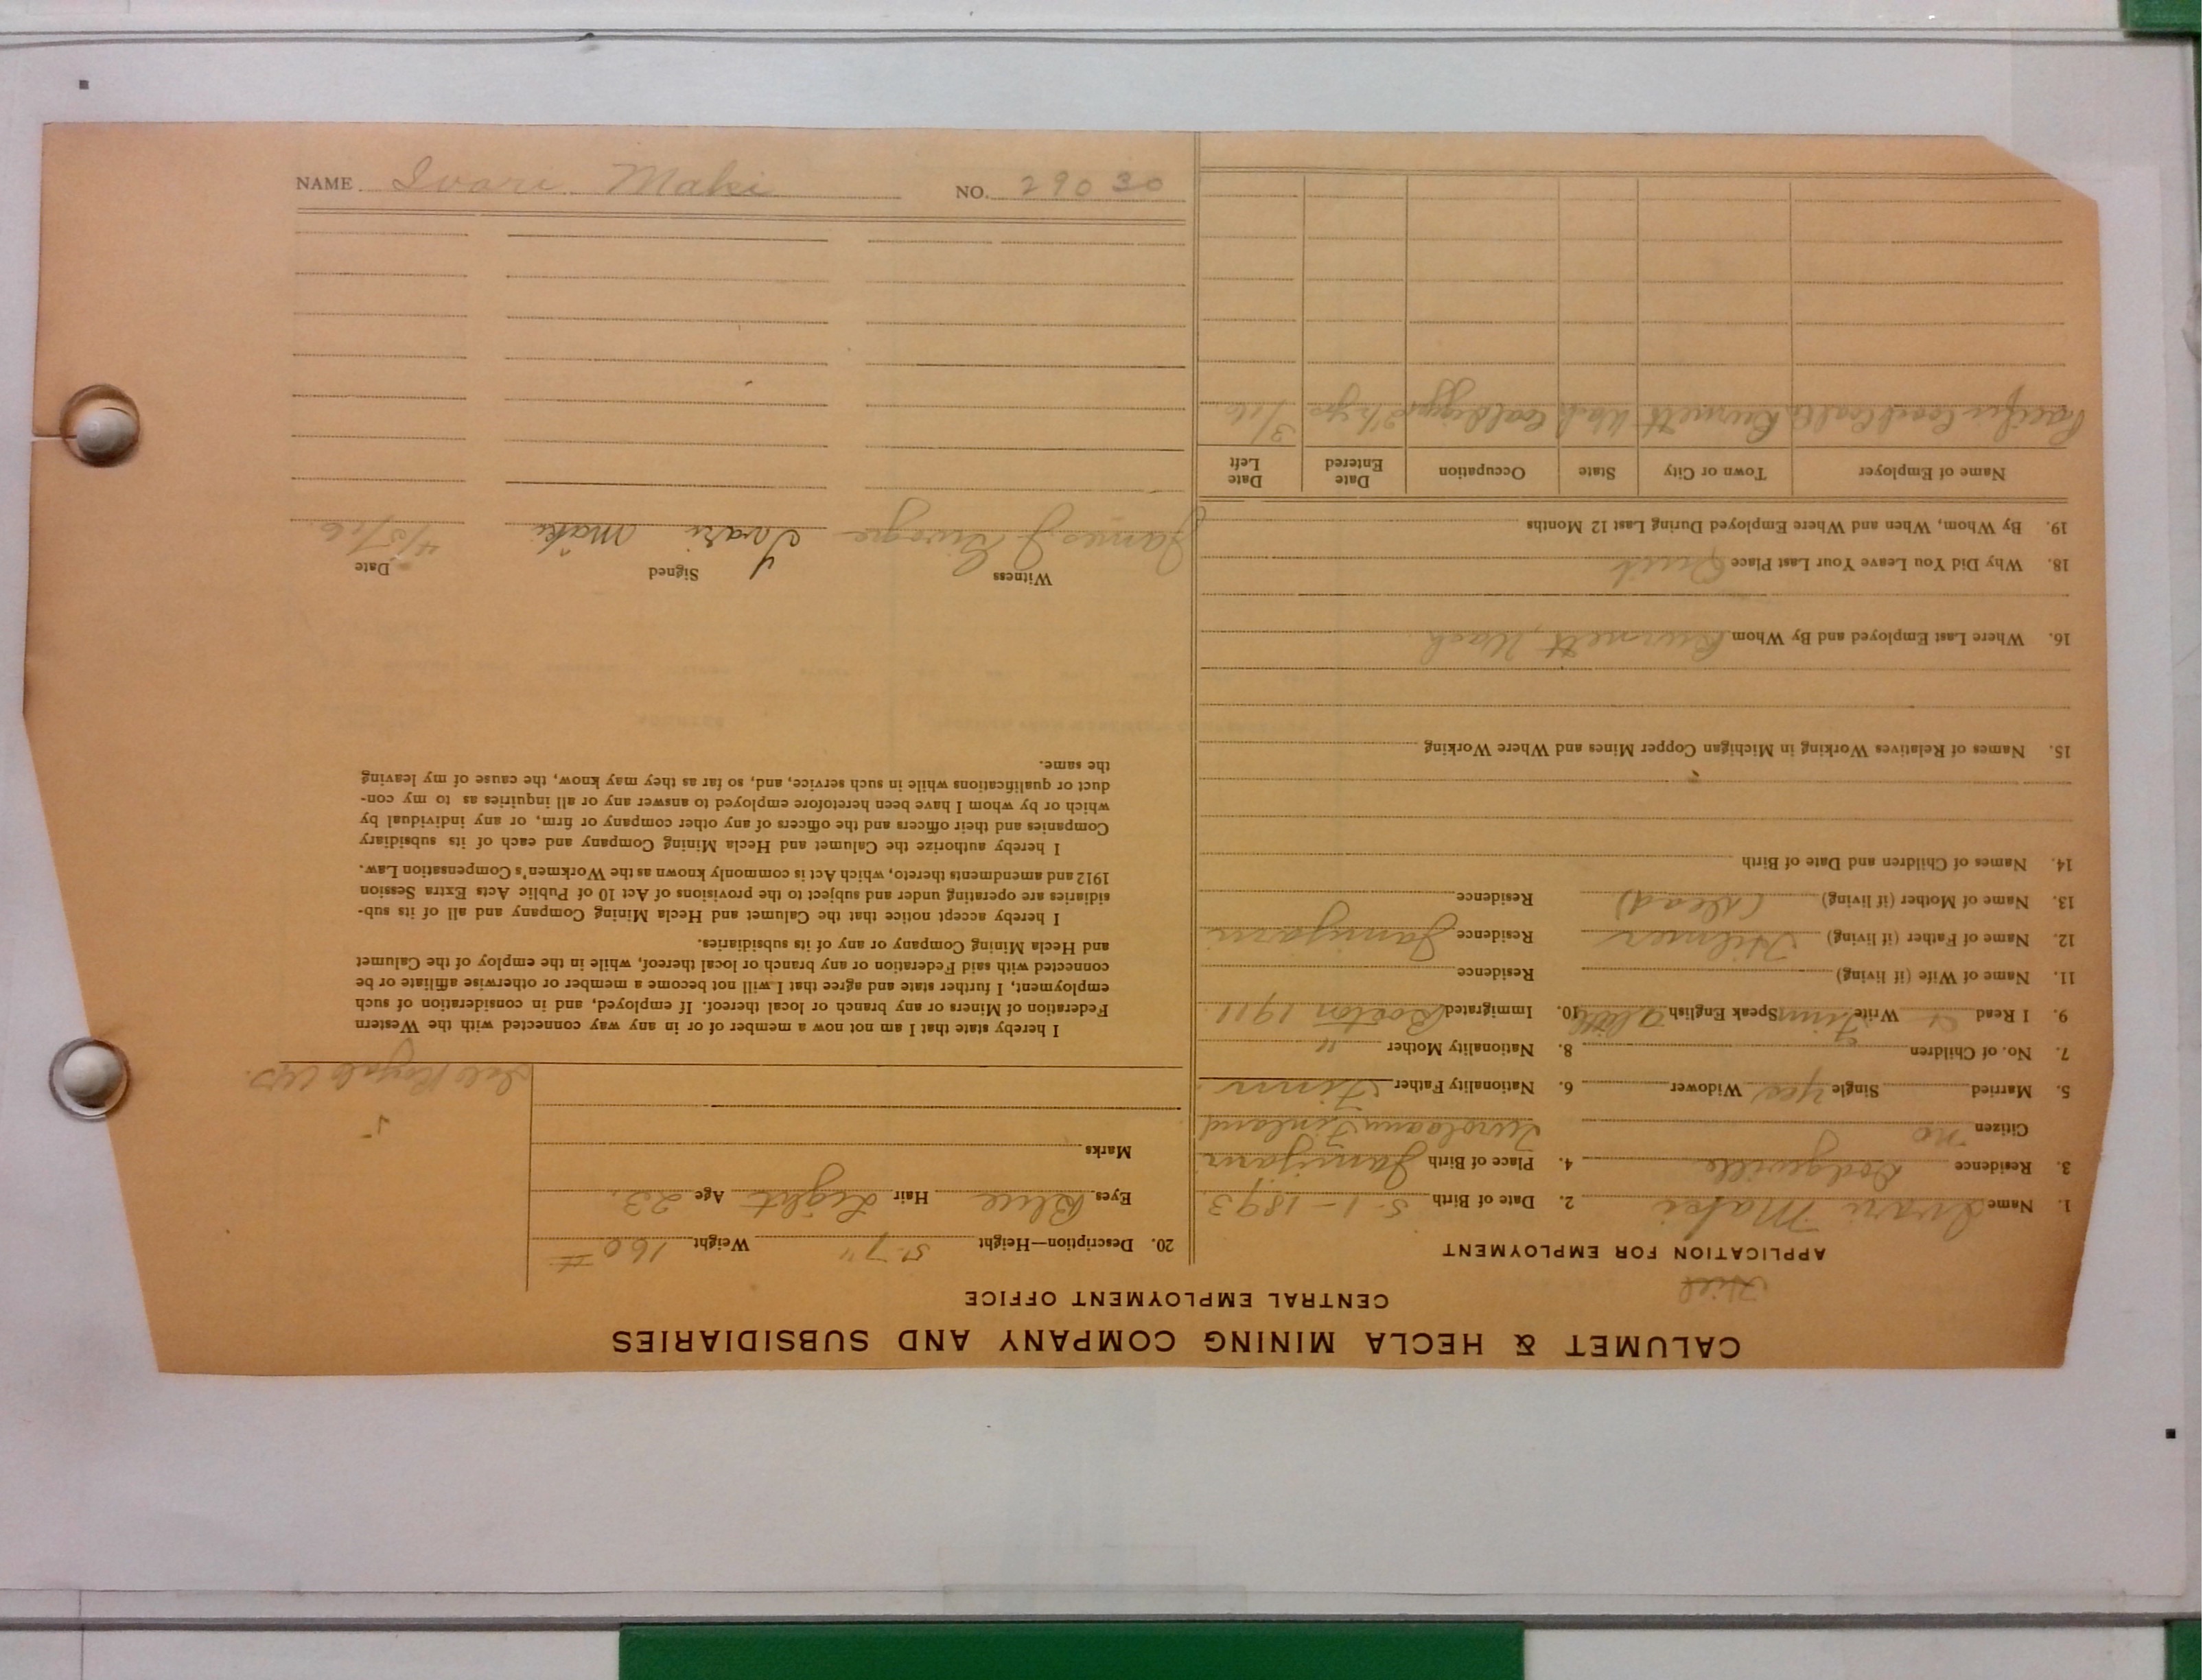 CALUMET & HECLA MINING COMPANY AND SUBSIDIARIES
CENTRAL EMPLOYMENT OFFICE
APPLICATION FOR EMPLOYMENT
1. Name Ivari Maki 2. Date of Birth 5-1-1893
3. Residence Dodgeville 4. Place of Birth Jamijarvi
Citizen no Finland
5. Married Single yes Widower 6. Nationality Father Finn
7. No. of Children 8. Nationality Mother "
9. I Read Write Finn Speak English a little 10. Immigrated Boston 1911
11. Name of Wife (if living) Residence
12. Name of Father (if living) Hilmer Residence Jamijarvi
13. Name of Mother (if living) (dead) Residence
14. Names of Children and Date of Birth
15. Names of Relatives Working in Michigan Copper Mines and Where Working
16. Where Last Employed and By Whom Burnett, Wash
18. Why Did You Leave Your Last Place Quit
19. By Whom, When and Where Employed During Last 12 Months
Name of Employer Town or City State Occupation Date Entered Date Left
Pacific Coast Coal Co Burnett Wash 2½ yrs 3/16
20. Description—Height 5' 7" Weight 160 #
Eyes Blue Hair Light Age 23
Marks
Isle Royale
I hereby state that I am not now a member of or in any way connected with the Western
Federation of Miners or any branch or local thereof. If employed, and in consideration of such
employment, I further state and agree that I will not become a member or otherwise affiliate or be
connected with said Federation or any branch or local thereof, while in the employ of the Calumet
and Hecla Mining Company or any of its subsidiaries.
I hereby accept notice that the Calumet and Hecla Mining Company and all of its sub-
sidiaries are operating under and subject to the provisions of Act 10 of Public Acts Extra Session
1912 and amendments thereto, which Act is commonly known as the Workmen's Compensation Law.
I hereby authorize the Calumet and Hecla Mining Company and each of its subsidiary
Companies and their officers and the officers of any other company or firm, or any individual by
which or by whom I have been heretofore employed to answer any or all inquiries as to my con-
duct or qualifications while in such service, and, so far as they may know, the cause of my leaving
the same.
Witness Signed Date
James J Ivari Maki 4/5/16
NAME Ivari Maki NO. 29030